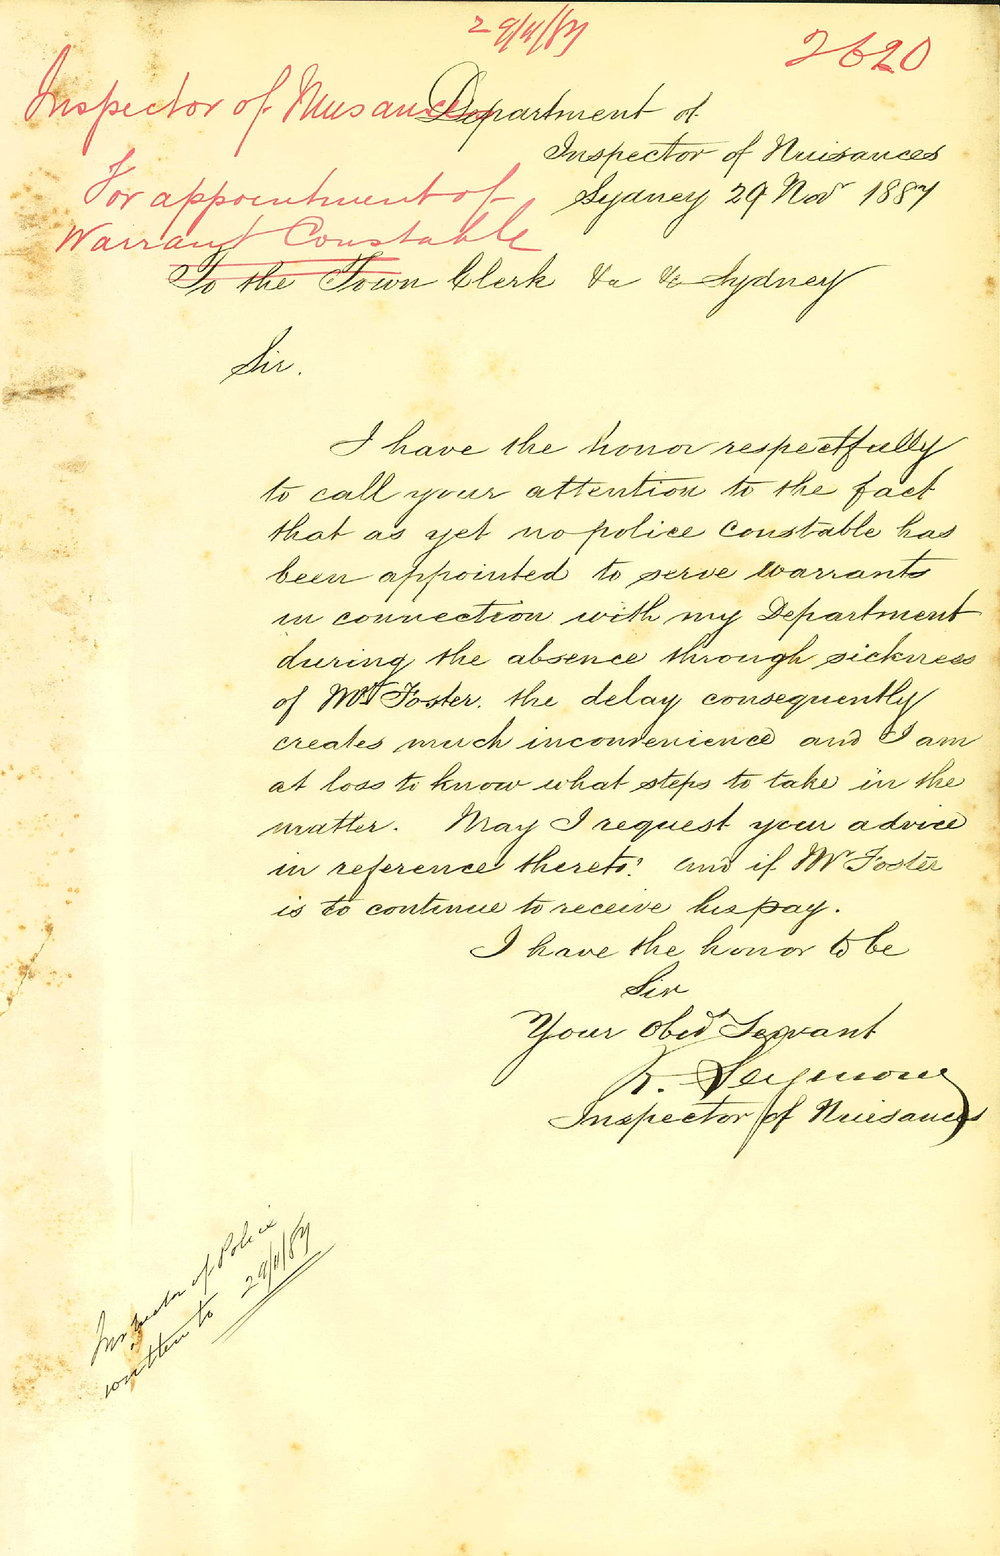 29/11/87
2620
Inspector of Nusances
Department of
Inspector of Nuisances
For appointment of
Sydney 29 Novr 1887
Warrant Constable
To the Town Clerk &c &c Sydney
Sir.
I have the honor respectfully
to call your attention to the fact
that as yet no police constable has
been appointed to serve warrants
in connection with my Department
during the absence through sickness
of Mr Foster. the delay consequently
creates much inconvenience and I am
at loss to know what steps to take in the
matter. May I request your advice
in reference thereto? and if Mr Foster
is to continue to receive his pay.
I have the honor to be
Sir
Your Obedt Servant
R. Seymour
Inspector of Nuisances
Inspector of Police
written to 29/11/87